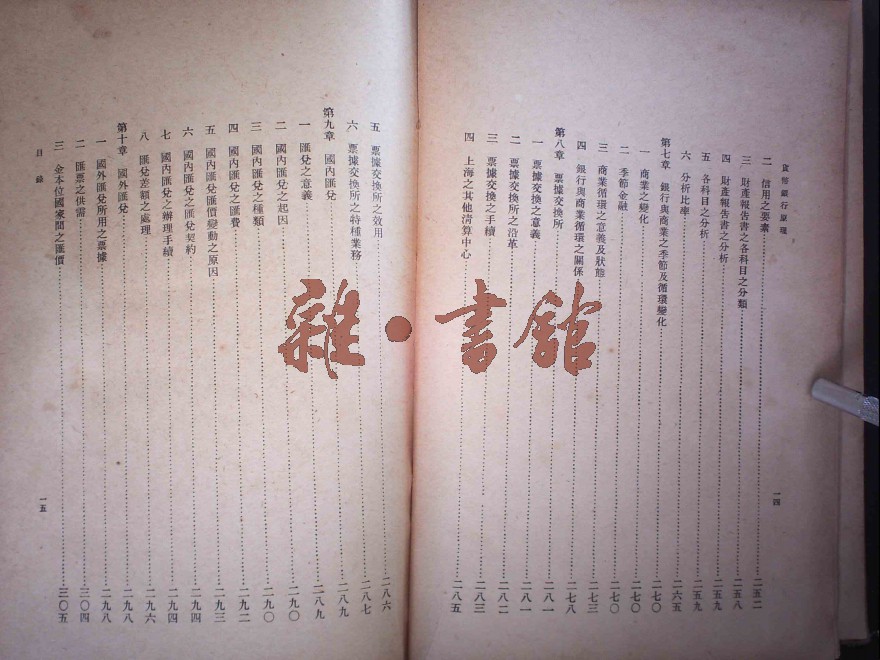 貨幣銀行原理
二　信用之要素……二五二
三　財產報告書之各科目之分類……二五八
四　財產報告書之分析……二五九
五　各科目之分析……二五九
六　分析比率……二六五
第七章　銀行與商業之季節及循環變化……二七〇
一　商業之變化……二七〇
二　季節金融……二七〇
三　商業循環之意義及狀態……二七三
四　銀行與商業循環之關係……二七八
第八章　票據交換所……二八一
一　票據交換之意義……二八一
二　票據交換所之沿革……二八二
三　票據交換之手續……二八三
四　上海之其他清算中心……二八五
一四
五　票據交換所之效用……二八六
六　票據交換所之特種業務……二八七
第九章　國內匯兌……二八九
一　匯兌之意義……二八九
二　國內匯兌之起因……二九〇
三　國內匯兌之種類……二九〇
四　國內匯兌之匯費……二九二
五　國內匯兌匯價變動之原因……二九三
六　國內匯兌之匯兌契約……二九四
七　國內匯兌之辦理手續……二九四
八　匯兌差額之處理……二九六
第十章　國外匯兌……二九八
一　國外匯兌所用之票據……二九八
二　匯票之供需……三〇四
三　金本位國家間之匯價……三〇五
目錄
一五
雜·書館